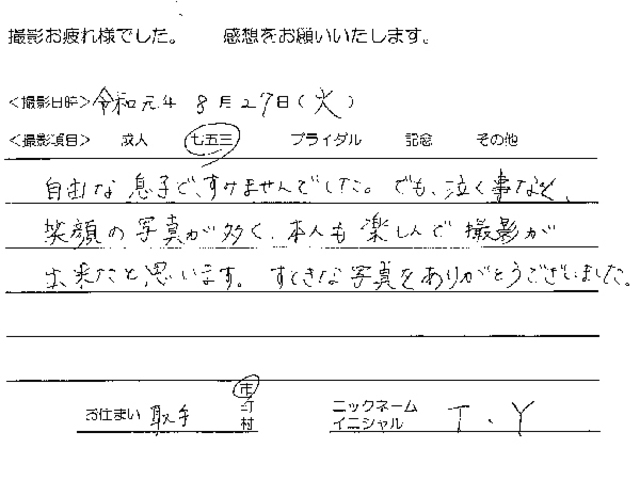 撮影お疲れ様でした。 感想をお願いいたします。
<撮影日時> 令和元年 8月27日(火)
<撮影項目> 成人 七五三 ブライダル 記念 その他
自由な息子で、すみませんでした。でも、泣く事なく、
笑顔の写真が多く、本人も楽しんで撮影が
出来たと思います。すてきな写真をありがとうございました。
お住まい 取手 市 町 村
ニックネーム イニシャル T.Y